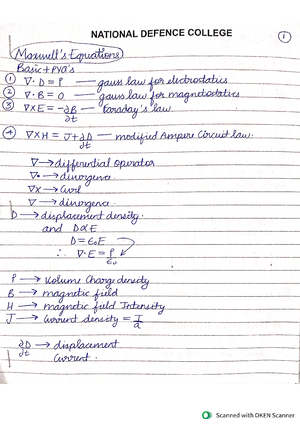 NATIONAL DEFENCE COLLEGE
1
Maxwell's Equations
Basic + PYQ's
① ∇·D = ρ — gauss law for electrostatics
② ∇·B = 0 — gauss law for magnetostatics
③ ∇×E = -∂B/∂t — Faraday's law.
④ ∇×H = J + ∂D/∂t — modified Ampere Circuit law.
∇ → differential operator
∇• → divergence
∇× → Curl
∇ → divergence.
D → displacement density.
and D∝E
D = ε₀E
∴ ∇·E = ρ/ε₀
ρ → Volume Charge density
B → magnetic field
H → magnetic field Intensity
J → Current density = I/a
∂D/∂t → displacement
Current.
Scanned with OKEN Scanner